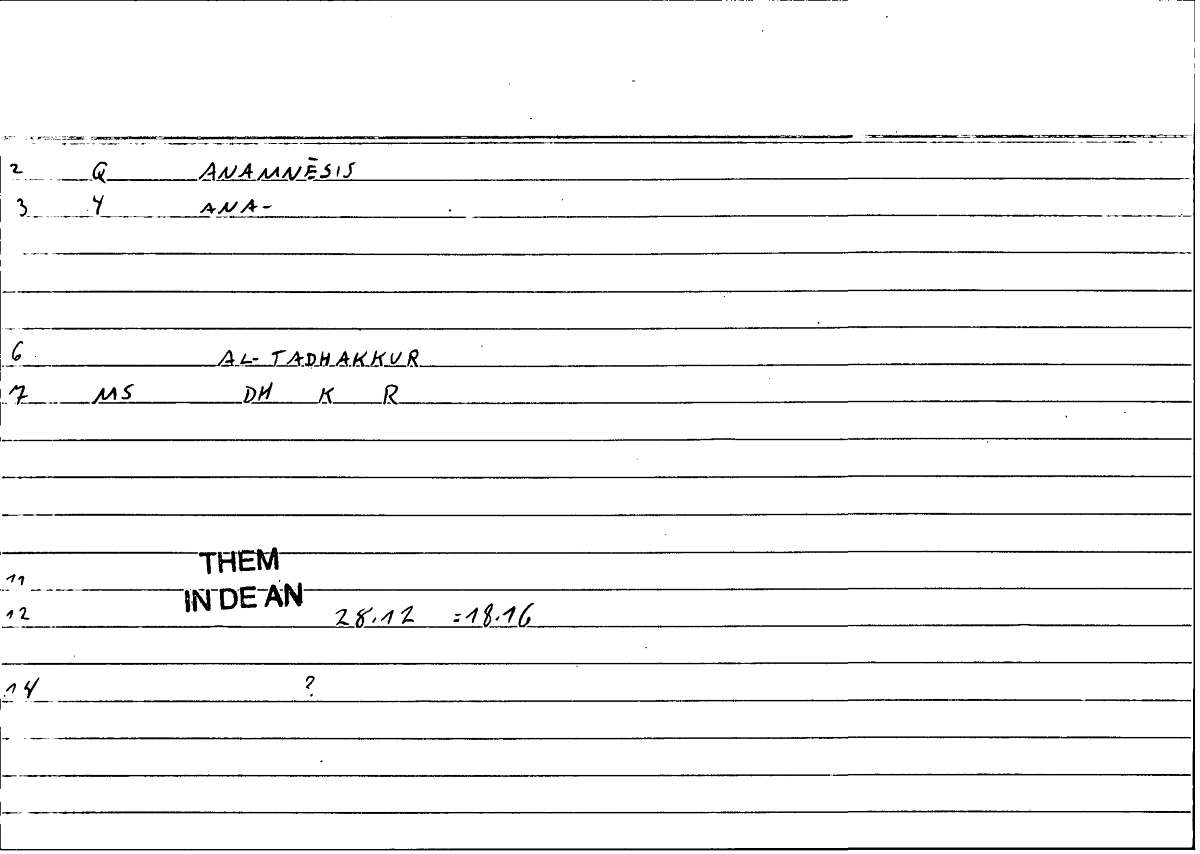 2 Q ANAMNĒSIS
3 Y ANA-
6 AL-TADHAKKUR
7 MS DH K R
11 THEM
12 IN DE AN 28.12 =18.16
14 ?